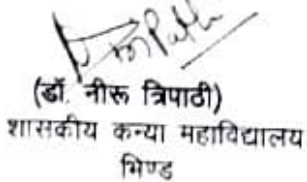 (डॉ. नीरू त्रिपाठी)
शासकीय कन्या महाविद्यालय
भिण्ड